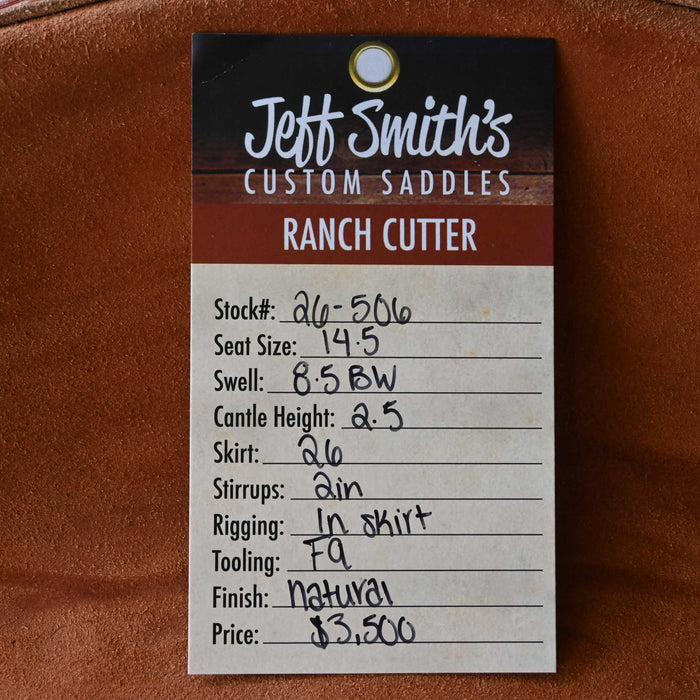 Jeff Smith's
CUSTOM SADDLES
RANCH CUTTER
Stock#: 26-506
Seat Size: 14.5
Swell: 8.5 BW
Cantle Height: 2.5
Skirt: 26
Stirrups: 2in
Rigging: In skirt
Tooling: FQ
Finish: natural
Price: $3,500